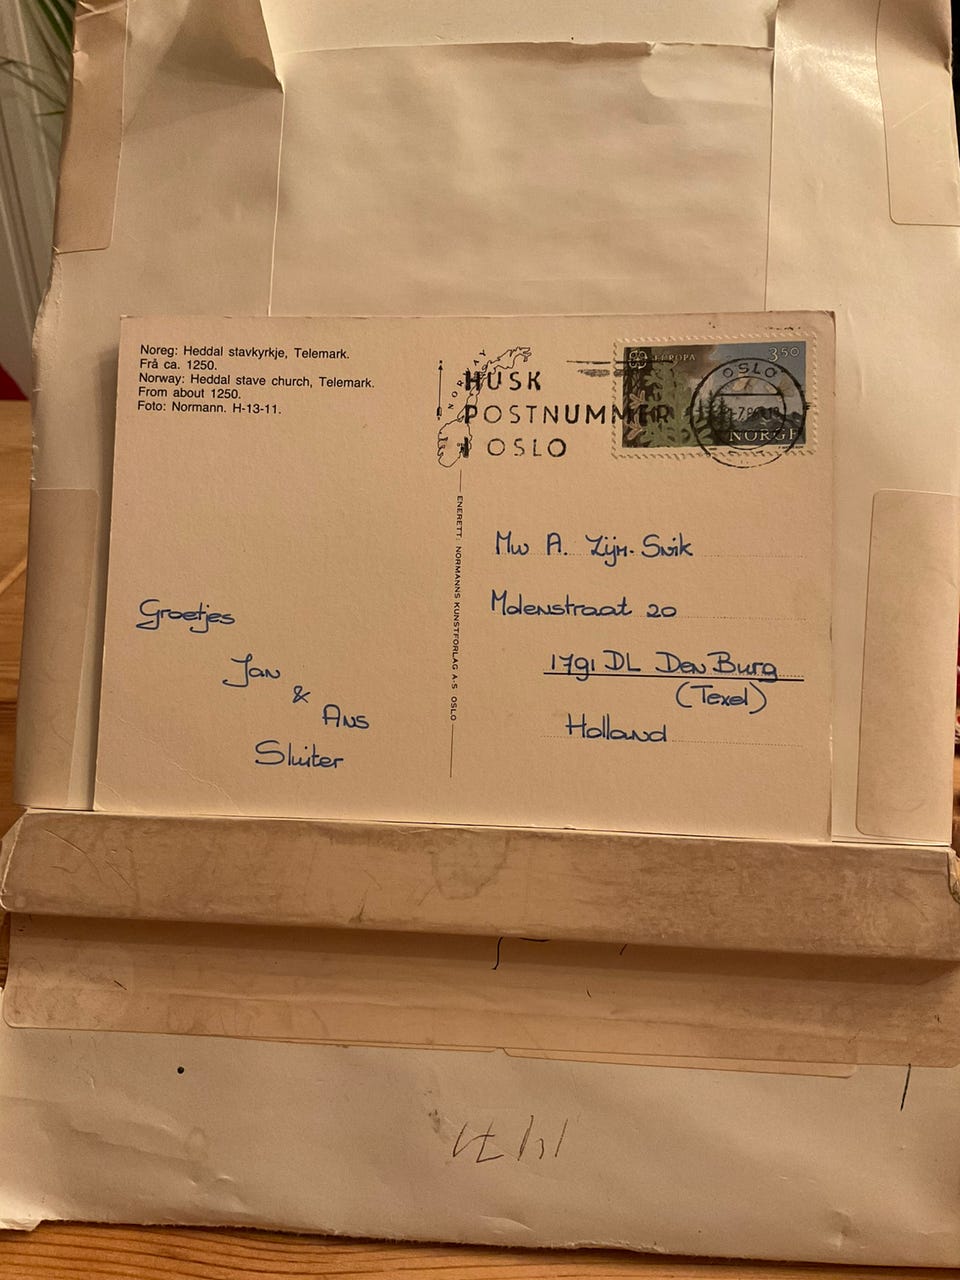 Noreg: Heddal stavkyrkje, Telemark.
Frå ca. 1250.
Norway: Heddal stave church, Telemark.
From about 1250.
Foto: Normann. H-13-11.
NORWAY
HUSK
POSTNUMMER
OSLO
EUROPA
3.50
NORGE
OSLO
ENERETT: NORMANNS KUNSTFORLAG A-S OSLO
Groetjes
Jan
&
Ans
Sluiter
Mw A. Zijm-Snik
Molenstraat 20
1791 DL Den Burg
(Texel)
Holland